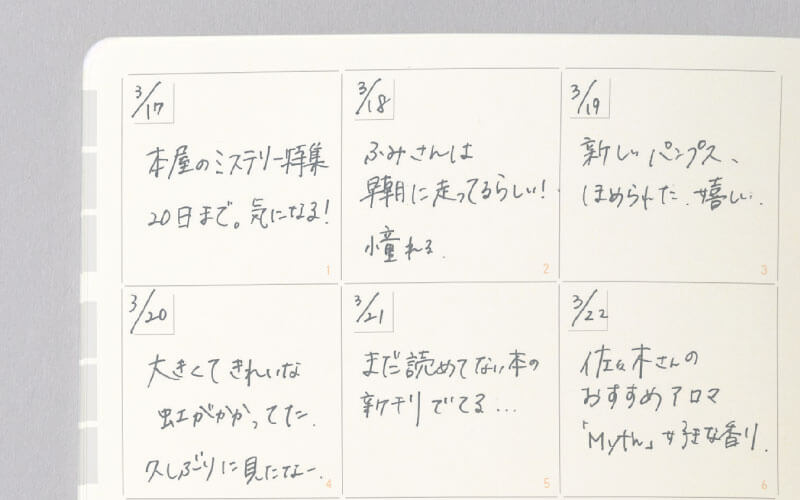 3/17
本屋のミステリー特集
20日まで。気になる!
1
3/18
ふみさんは
早朝に走ってるらしい!
憧れる.
2
3/19
新しいパンプス、
ほめられた.嬉しい.
3
3/20
大きくてきれいな
虹がかかってた.
久しぶりに見たなー.
4
3/21
まだ読めてない本の
新刊でてる...
5
3/22
佐々木さんの
おすすめアロマ
「Myth」好きな香り.
6